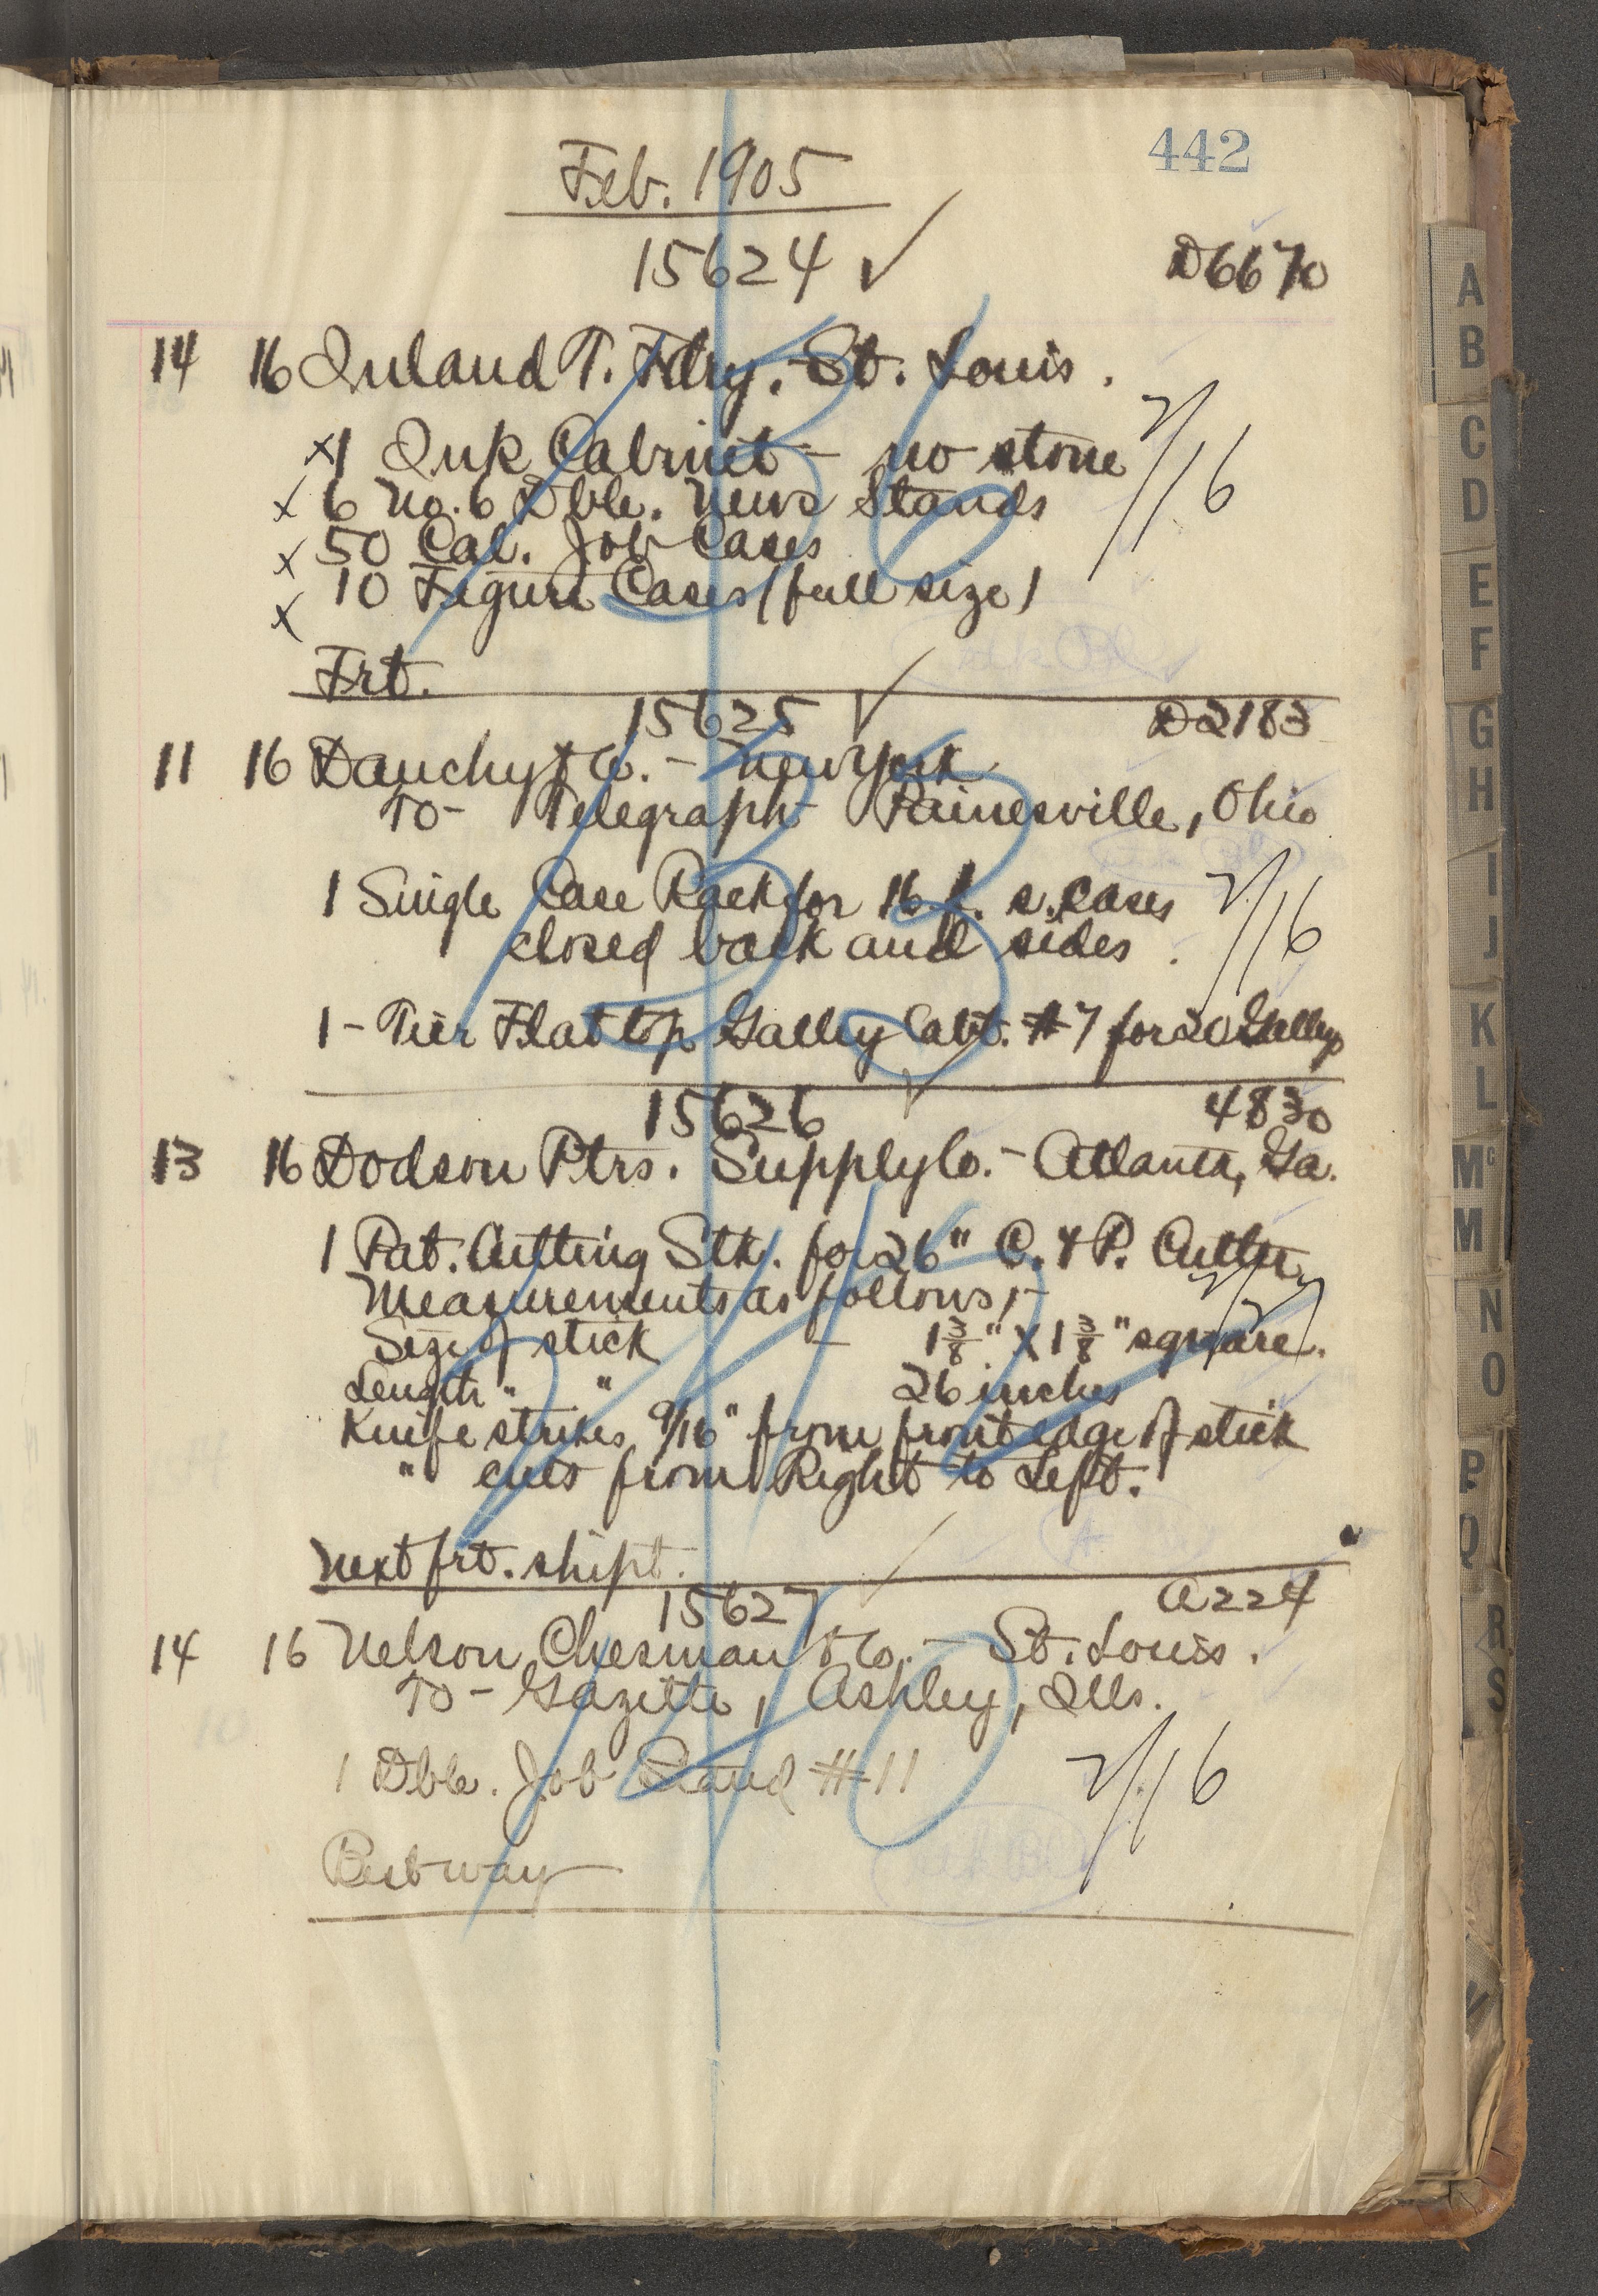 442
Feb. 1905
15624 ✓ D6670
14 16 Inland T. Fdry. St. Louis.
x 1 Ink Cabinet - no stone 2/16
x 6 No. 6 Dble. News Stands
x 50 Cal. Job Cases
x 10 Figure Cases (full size)
Frt.
15625 ✓ D2183
11 16 Dauchy & Co. - New York
To - Telegraph - Painesville, Ohio
1 Single Case Rack for 16 f. s. cases 2/16
closed back and sides.
1 - Tier Flat top Galley Cabt. #7 for 20 Galleys
15626 ✓ 4830
13 16 Dodson Ptrs. Supply Co. - Atlanta, Ga.
1 Pat. Cutting Stk. for 26" C. & P. Cutter
Measurements as follows; -
Size of stick - 1 3/8" x 1 3/8" square.
Length " " 26 inches
Knife strikes 9/16" from front edge of stick
" cuts from Right to Left.
Next frt. shipt.
15627 ✓ A224
14 16 Nelson Chesman & Co. - St. Louis.
To - Gazette, Ashley, Ills.
1 Dble. Job Stand #11 2/16
Best way
A
B
C
D
E
F
G
H
I
J
K
L
Mc
M
N
O
P
Q
R
S